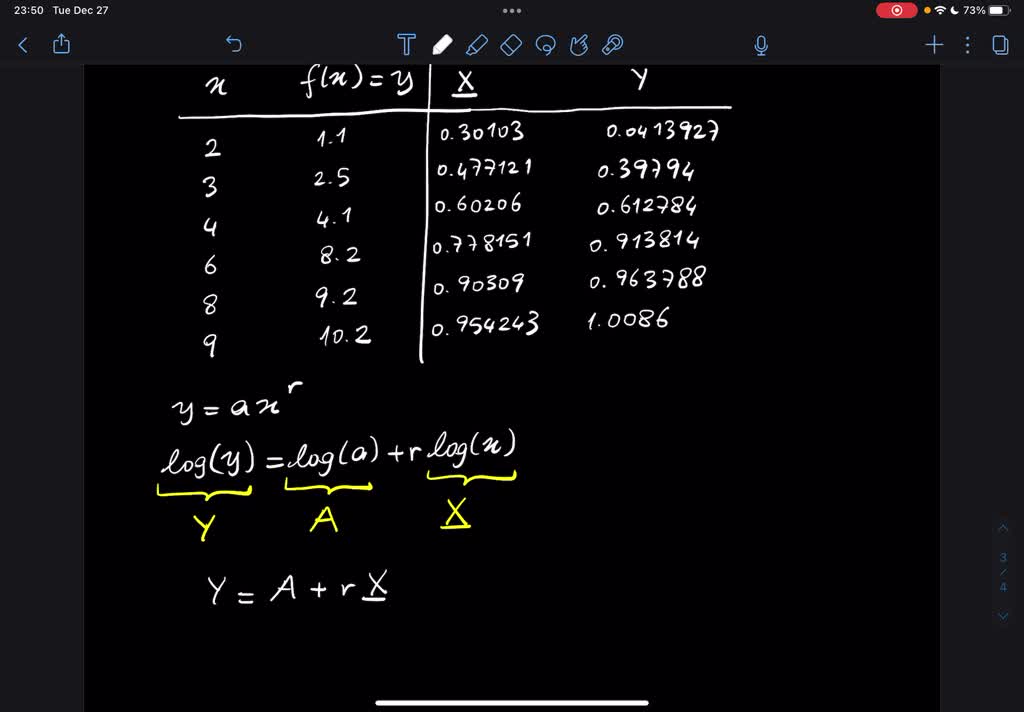 23:50 Tue Dec 27
73%
x f(x) = y X Y
2 1.1 0.30103 0.0413927
3 2.5 0.477121 0.39794
4 4.1 0.60206 0.612784
6 8.2 0.778151 0.913814
8 9.2 0.90309 0.963788
9 10.2 0.954243 1.0086
y = ax^r
log(y) = log(a) + r log(x)
Y A X
Y = A + r X
3
/
4